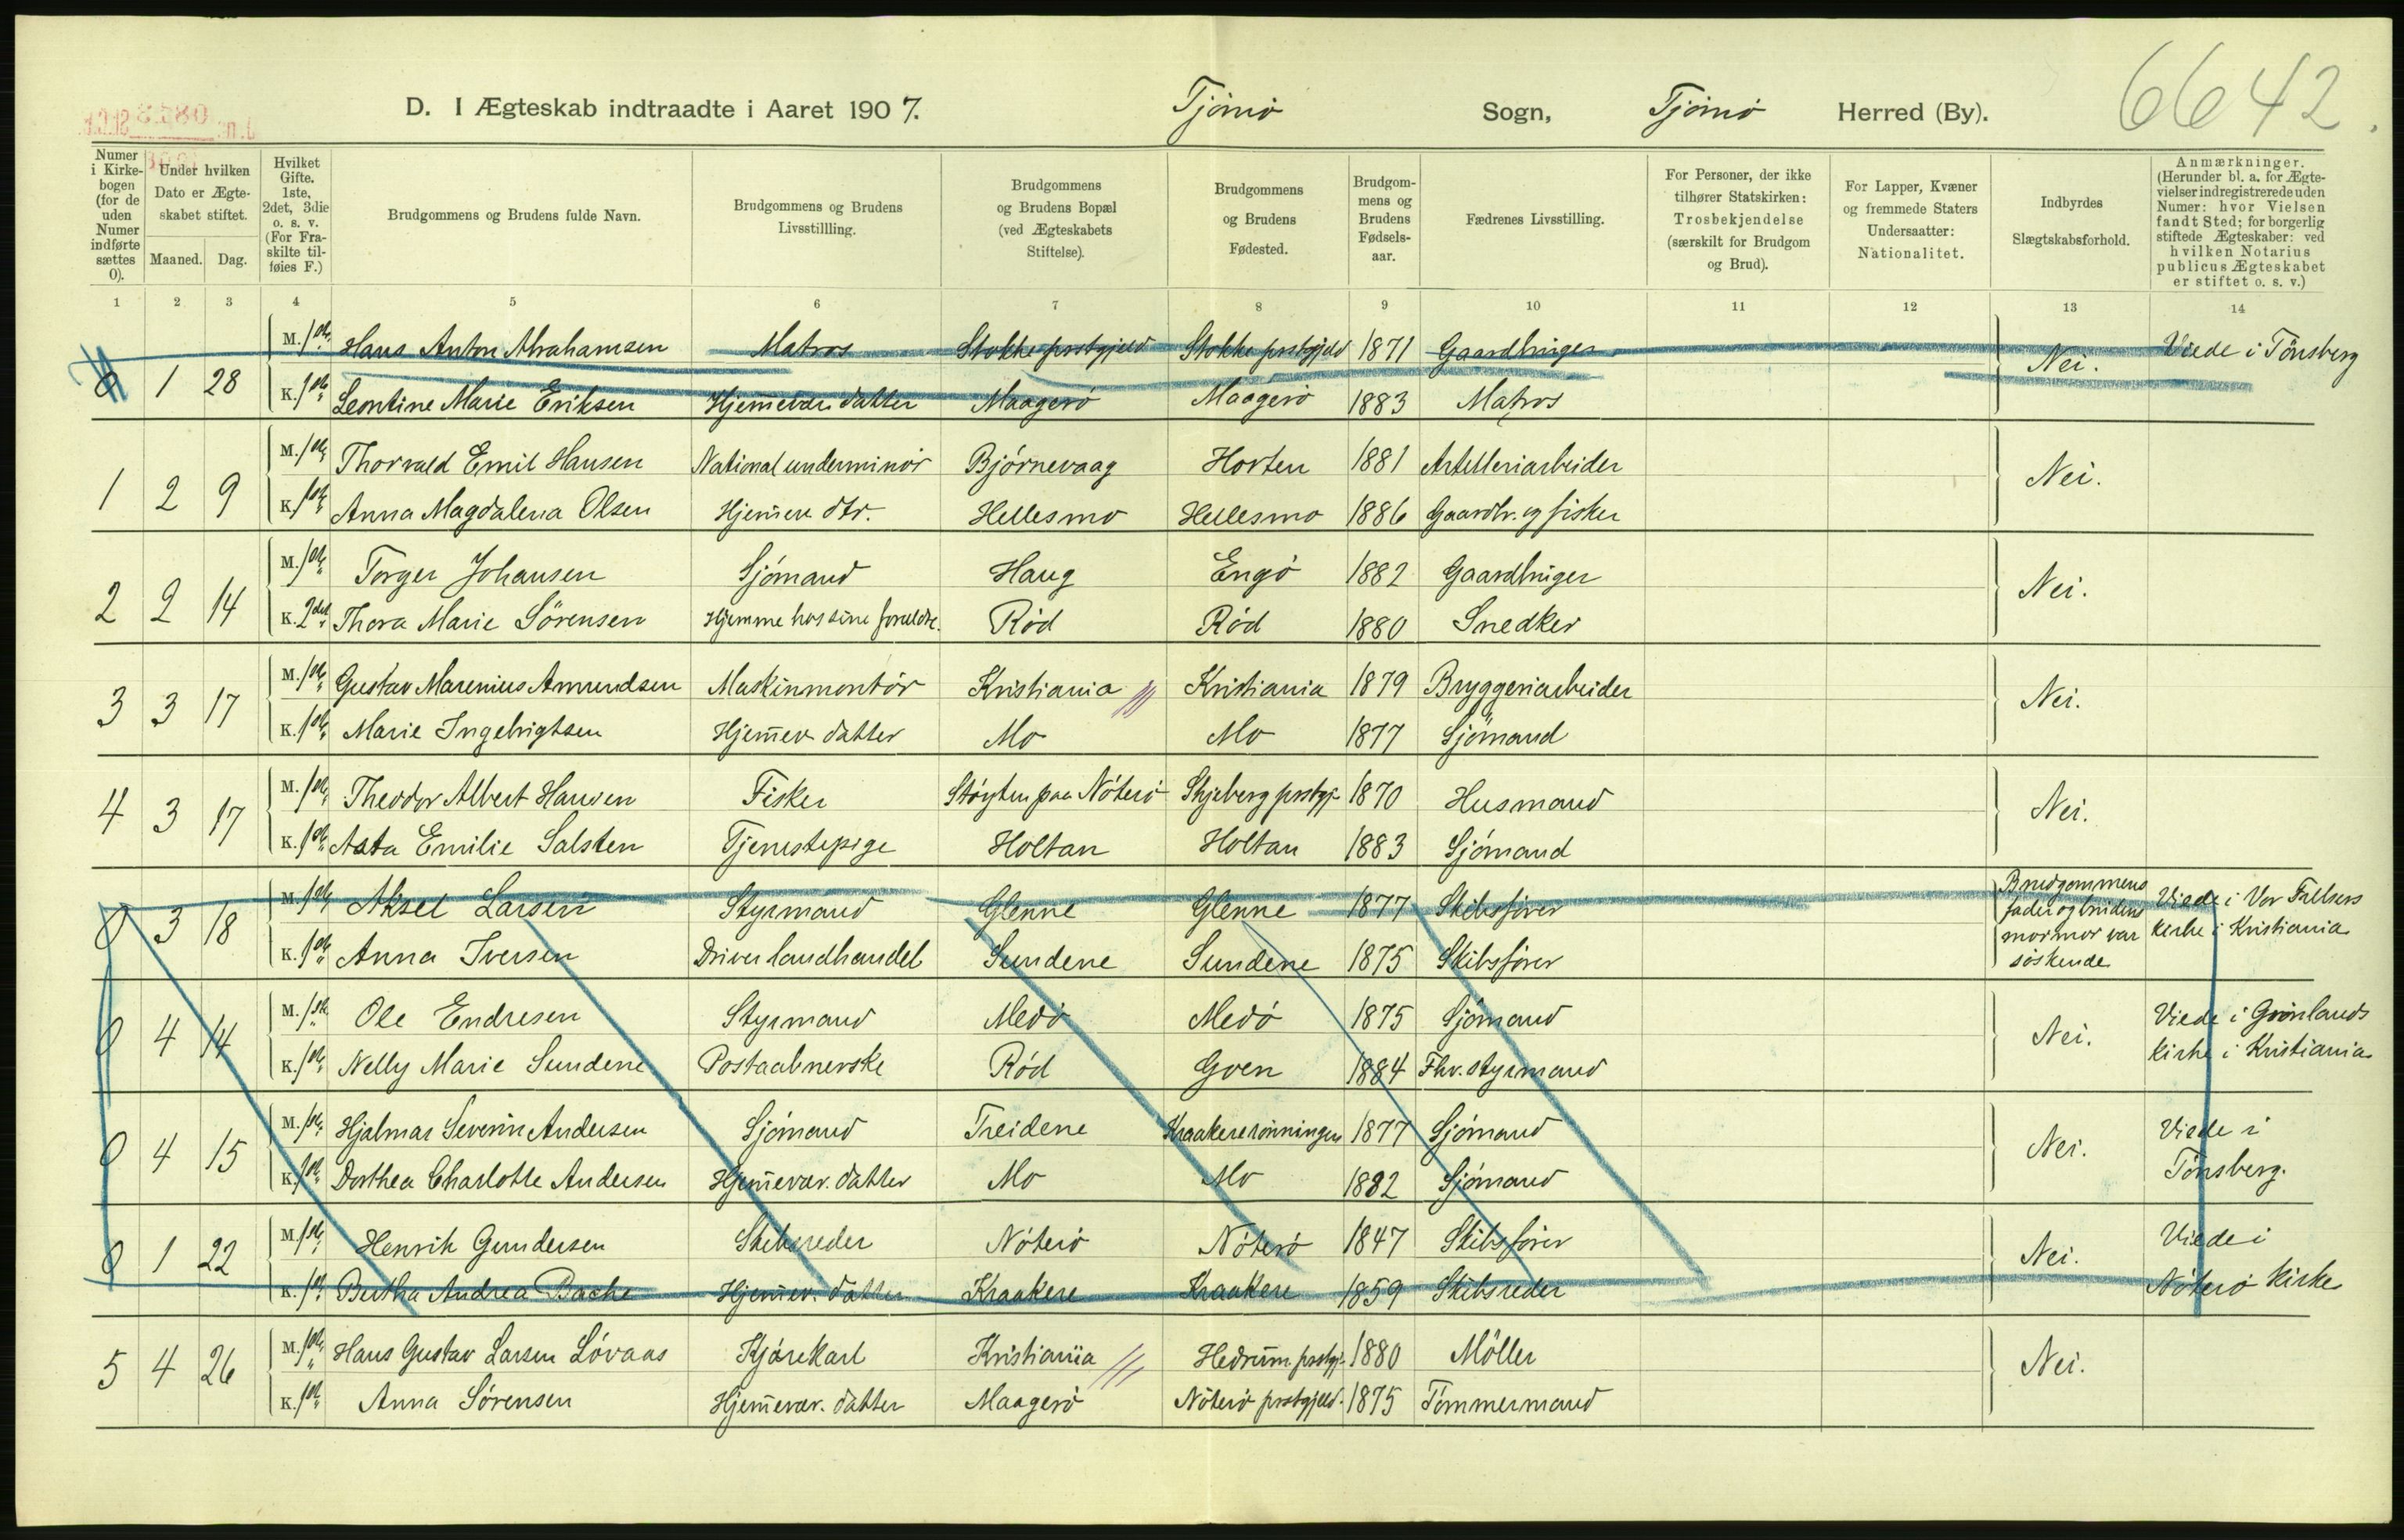 6642.
D. I Ægteskab indtraadte i Aaret 1907. Tjømø Sogn, Tjømø Herred (By).
Numer i Kirkebogen (for de uden Numer indførte sættes 0).
Under hvilken Dato er Ægteskabet stiftet.
Maaned. Dag.
Hvilket Gifte. 1ste, 2det, 3die o. s. v. (For Fraskilte tilføies F.)
Brudgommens og Brudens fulde Navn.
Brudgommens og Brudens Livsstillling.
Brudgommens og Brudens Bopæl (ved Ægteskabets Stiftelse).
Brudgommens og Brudens Fødested.
Brudgommens og Brudens Fødselsaar.
Fædrenes Livsstilling.
For Personer, der ikke tilhører Statskirken: Trosbekjendelse (særskilt for Brudgom og Brud).
For Lapper, Kvæner og fremmede Staters Undersaatter: Nationalitet.
Indbyrdes Slægtskabsforhold.
Anmærkninger. (Herunder bl. a. for Ægtevielser indregistrerede uden Numer: hvor Vielsen fandt Sted; for borgerlig stiftede Ægteskaber: ved hvilken Notarius publicus Ægteskabet er stiftet o. s. v.)
1 2 3 4 5 6 7 8 9 10 11 12 13 14
M. 1ste Hans Anton Abrahamsen Matros Stokke prstgjeld Stokke prstgjeld 1871 Gaardbruger Viede i Tønsberg
0 1 28 Nei.
K. 1ste Leontine Marie Eriksen Hjemmev. datter Maagerø Maagerø 1883 Matros
M. 1ste Thorvald Emil Hansen National underminør Bjørnevaag Horten 1881 Artilleriarbeider
1 2 9 Nei.
K. 1ste Anna Magdalena Olsen Hjem̄ev. dtr. Hellesmo Hellesmo 1886 Gaardb. og fisker
M. 1ste Torger Johansen Sjømand Haug Engø 1882 Gaardbruger
2 2 14 Nei.
K. 2det Thora Marie Sørensen Hjemme hos sine forældre. Rød Rød 1880 Snedker
M. 1ste Gustav Marenius Amundsen Maskinmontør Kristiania Kristiania 1879 Bryggeriarbeider
3 3 17 Nei.
K. 1ste Marie Ingebrigtsen Hjem̄ev. datter Mo Mo 1877 Sjømand
M. 1ste Theodor Albert Hansen Fisker Støyten paa Nøterø Skjeberg prstgj. 1870 Husmand
4 3 17 Nei.
K. 1ste Asta Emilie Salsten Tjenestepige Holtan Holtan 1883 Sjømand
M. 1ste Aksel Larsen Styrmand Glenne Glenne 1877 Skibsfører Brudgommens Viede i Vor Frelsers
0 3 18 fader og brudens
K. 1ste Anna Iversen Driver landhandel Sundene Sundene 1875 Skibsfører mormor var kirke i Kristiania
søskende
M. 1ste Ole Endresen Styrmand Medø Medø 1875 Sjømand Viede i Grønlands
0 4 14 Nei.
K. 1ste Nelly Marie Sundene Postaabnerske Rød Gven 1884 Fhv. styrmand kirke i Kristiania
M. 1ste Hjalmar Severin Andersen Sjømand Treidene Kraakererønningen 1877 Sjømand Viede i
0 4 15 Nei.
K. 1ste Dorthea Charlotte Andersen Hjem̄evær. datter Mo Mo 1882 Sjømand Tønsberg.
M. 1ste Henrik Gundersen Skibsreder Nøterø Nøterø 1847 Skibsfører Viede i
0 1 22 Nei.
K. 1ste Bertha Andrea Bache Hjem̄ev. datter Kraakere Kraakere 1859 Skibsreder Nøterø kirke
M. 1ste Hans Gustav Larsen Løvaas Kjørekarl Kristiania Hedrum prstgj. 1880 Møller
5 4 26 Nei.
K. 1ste Anna Sørensen Hjem̄evær. datter Maagerø Nøterø prstgjeld. 1875 Tømmermand